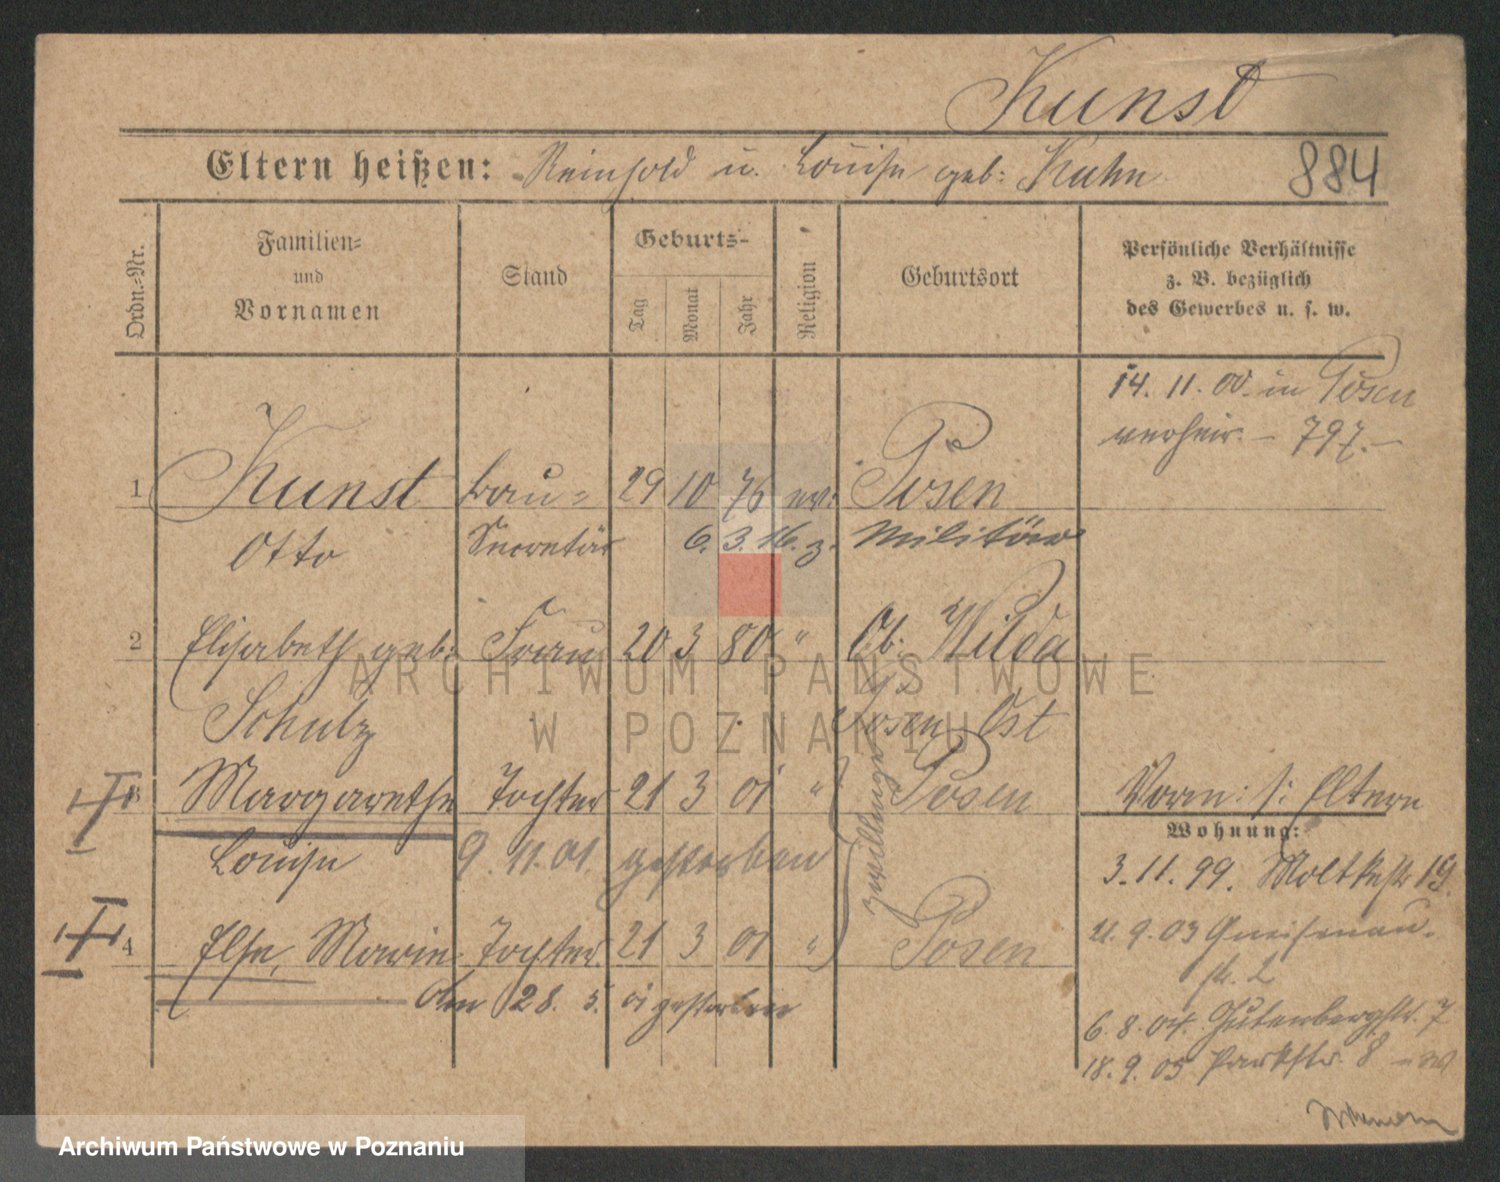 Kunst
Eltern heißen: Reinhold u. Louise geb: Kuhn
884
Ordn.-Nr.
Familien-
und
Vornamen
Stand
Geburts-
Tag
Monat
Jahr
Religion
Geburtsort
Persönliche Verhältnisse
z. B. bezüglich
des Gewerbes u. s. w.
14. 11. 00. in Posen
verheir. – 797. –
1 Kunst Bau= 29 10 76 ev: Posen
Otto Secretär 6. 3. 16. z. Militär
2 Elisabeth geb: Frau 20 3 80 " Ob. Wilda
Schulz Posen Ost
3 Margarethe Tochter 21 3 01 " Posen
Louise 9. 11. 01. gestorben
Zwillinge
4 Else, Marie Tochter 21 3 01 " Posen
Am 28. 5. 01 gestorben
Vorm: s: Eltern
Wohnung:
3. 11. 99. Moltkestr 19.
9. 03 Gneisenau-
str. 2
6. 8. 04. Gutenbergstr. 7
18. 9. 05 Parkstr. 8
ARCHIWUM PAŃSTWOWE
W POZNANIU
Archiwum Państwowe w Poznaniu